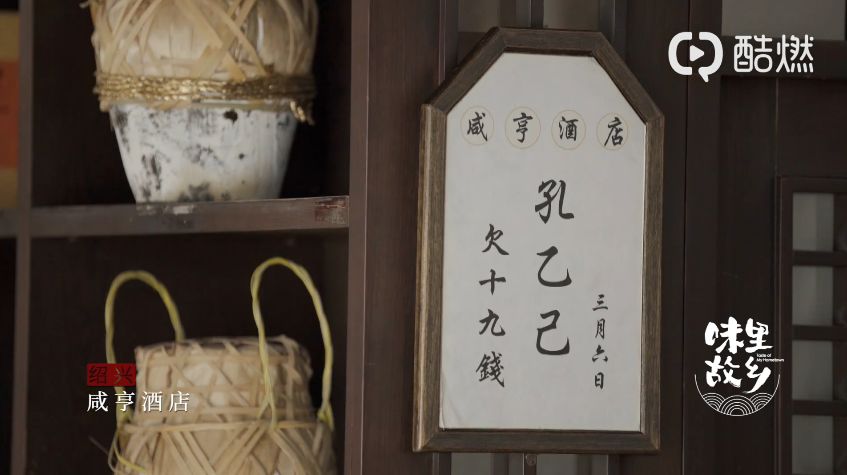 酷燃
咸亨酒店
三月六日
孔乙己
欠十九錢
味里故乡
Taste of
My Hometown
绍兴
咸亨酒店